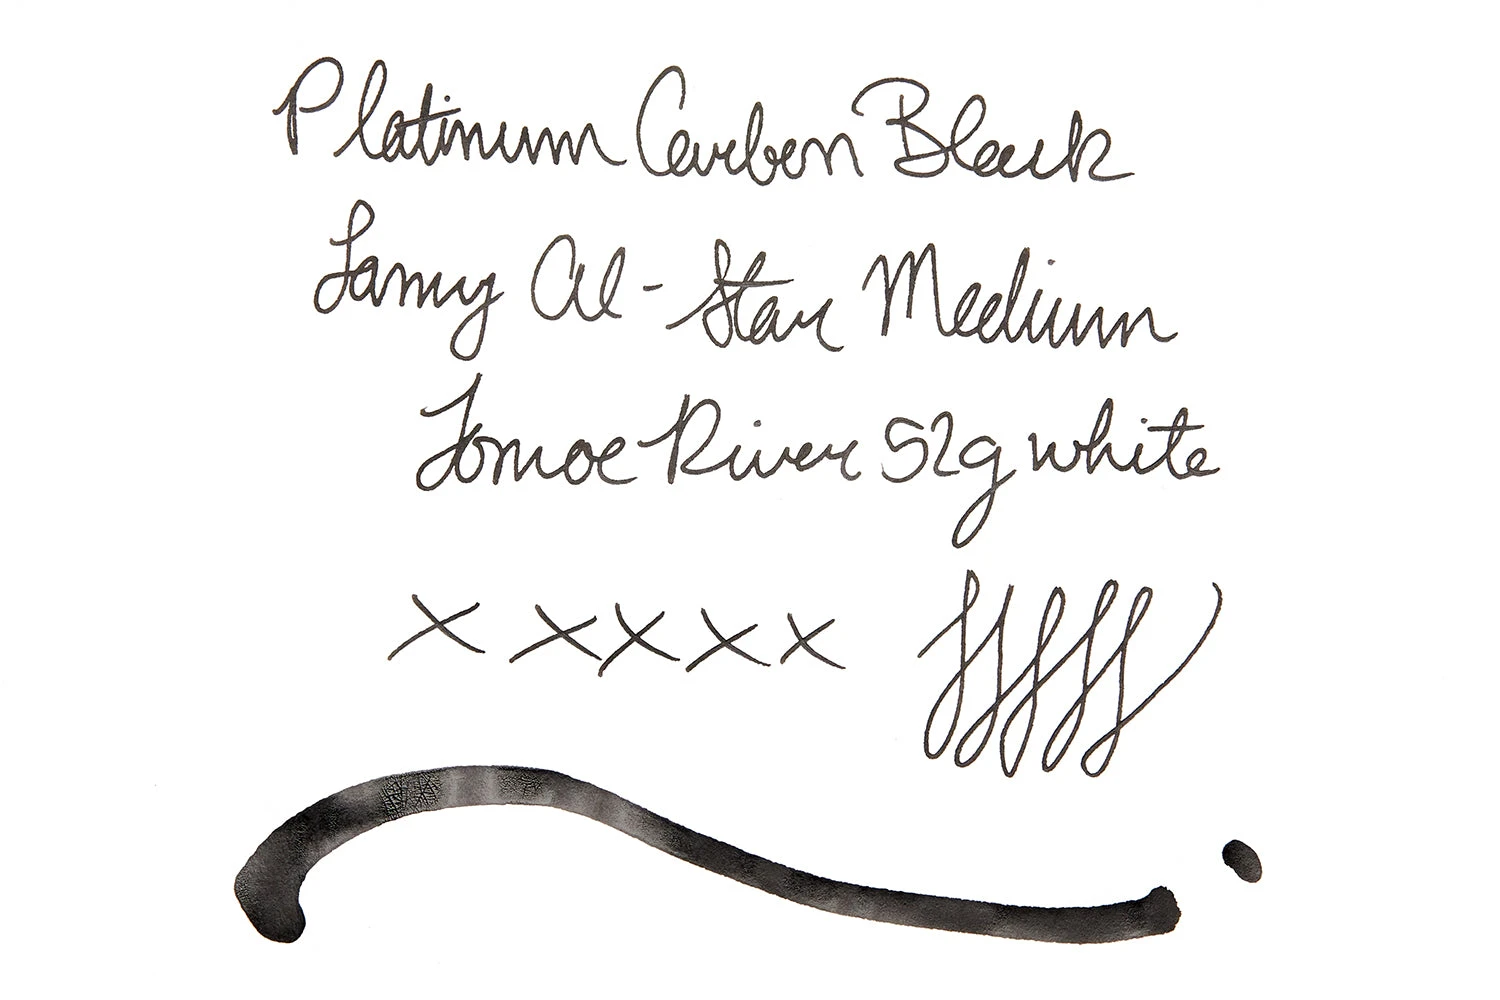 Platinum Carbon Black
Lamy Al-Star Medium
Tomoe River 52g white
x x x x x